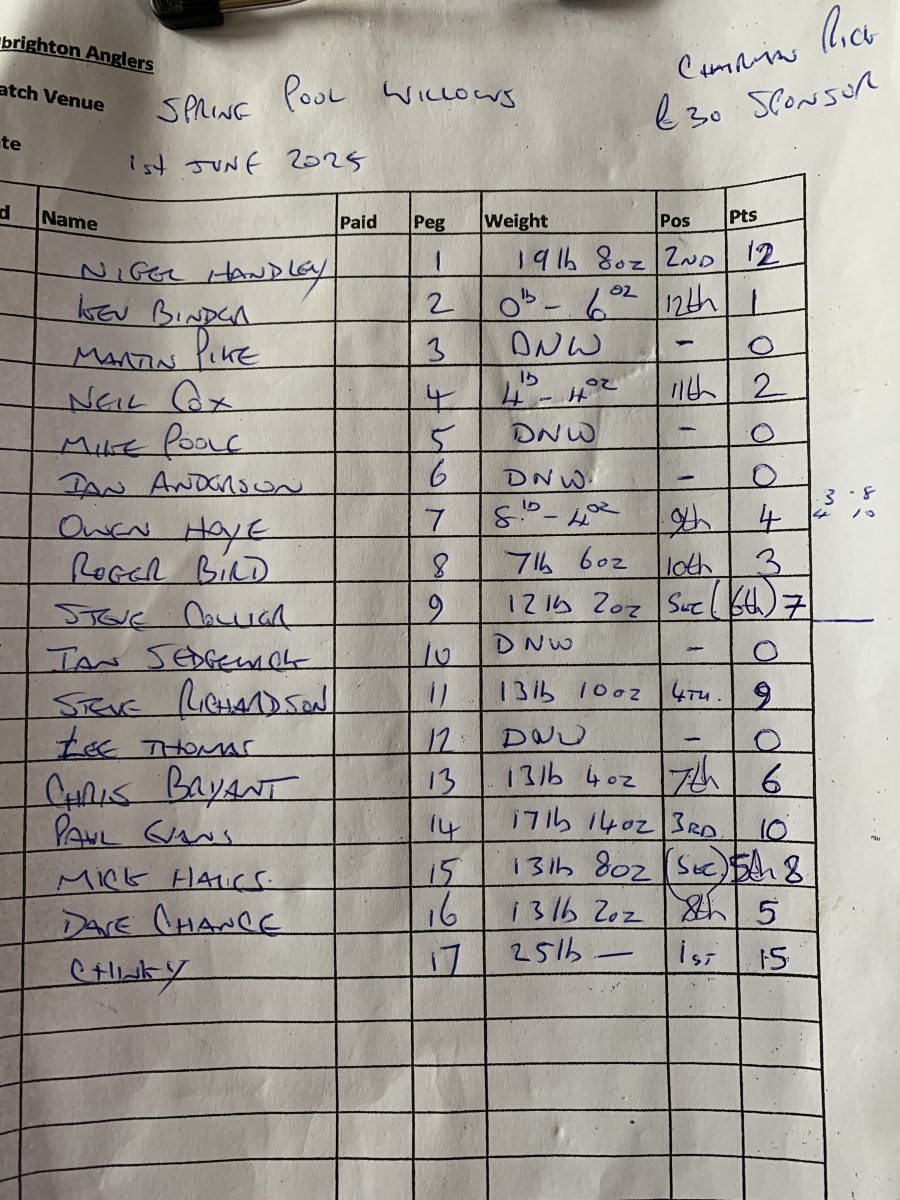 brighton Anglers
CHAIRMAN RICK
atch Venue SPRING POOL WILLOWS
£30 SPONSOR
te 1st JUNE 2025
d Name Paid Peg Weight Pos Pts
NIGEL HANDLEY 1 19lb 8oz 2ND 12
KEV BINDER 2 0lb - 6oz 12th 1
MARTIN PIKE 3 DNW - 0
NEIL COX 4 4lb - 4oz 11th 2
MIKE POOLE 5 DNW - 0
IAN ANDERSON 6 DNW - 0
3 . 8
OWEN HAYE 7 8lb - 4oz 9th 4 4 10
ROGER BIRD 8 7lb 6oz 10th 3
STEVE COLLIER 9 12lb 2oz SEC (6th) 7
IAN SEDGEWICK 10 DNW - 0
STEVE RICHARDSON 11 13lb 10oz 4TH. 9
LEE THOMAS 12 DNW - 0
CHRIS BRYANT 13 13lb 4oz 7th 6
PAUL EVANS 14 17lb 14oz 3RD 10
MICK HALES. 15 13lb 8oz (SEC) 5th 8
DAVE CHANCE 16 13lb 2oz 8th 5
CHINKY 17 25lb — 1ST 15